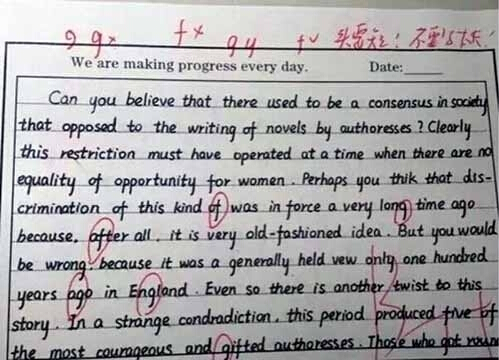 g g× f× g y
We are making progress every day. Date:
Can you believe that there used to be a consensus in society
that opposed to the writing of novels by authoresses? Clearly
this restriction must have operated at a time when there are no
equality of opportunity for women. Perhaps you thik that dis-
crimination of this kind of was in force a very long time ago
because, after all, it is very old-fashioned idea. But you would
be wrong: because it was a generally held vew only one hundred
years ago in England. Even so there is another twist to this
story. In a strange condradiction, this period produced five of
the most courageous and gifted authoresses. Those who got